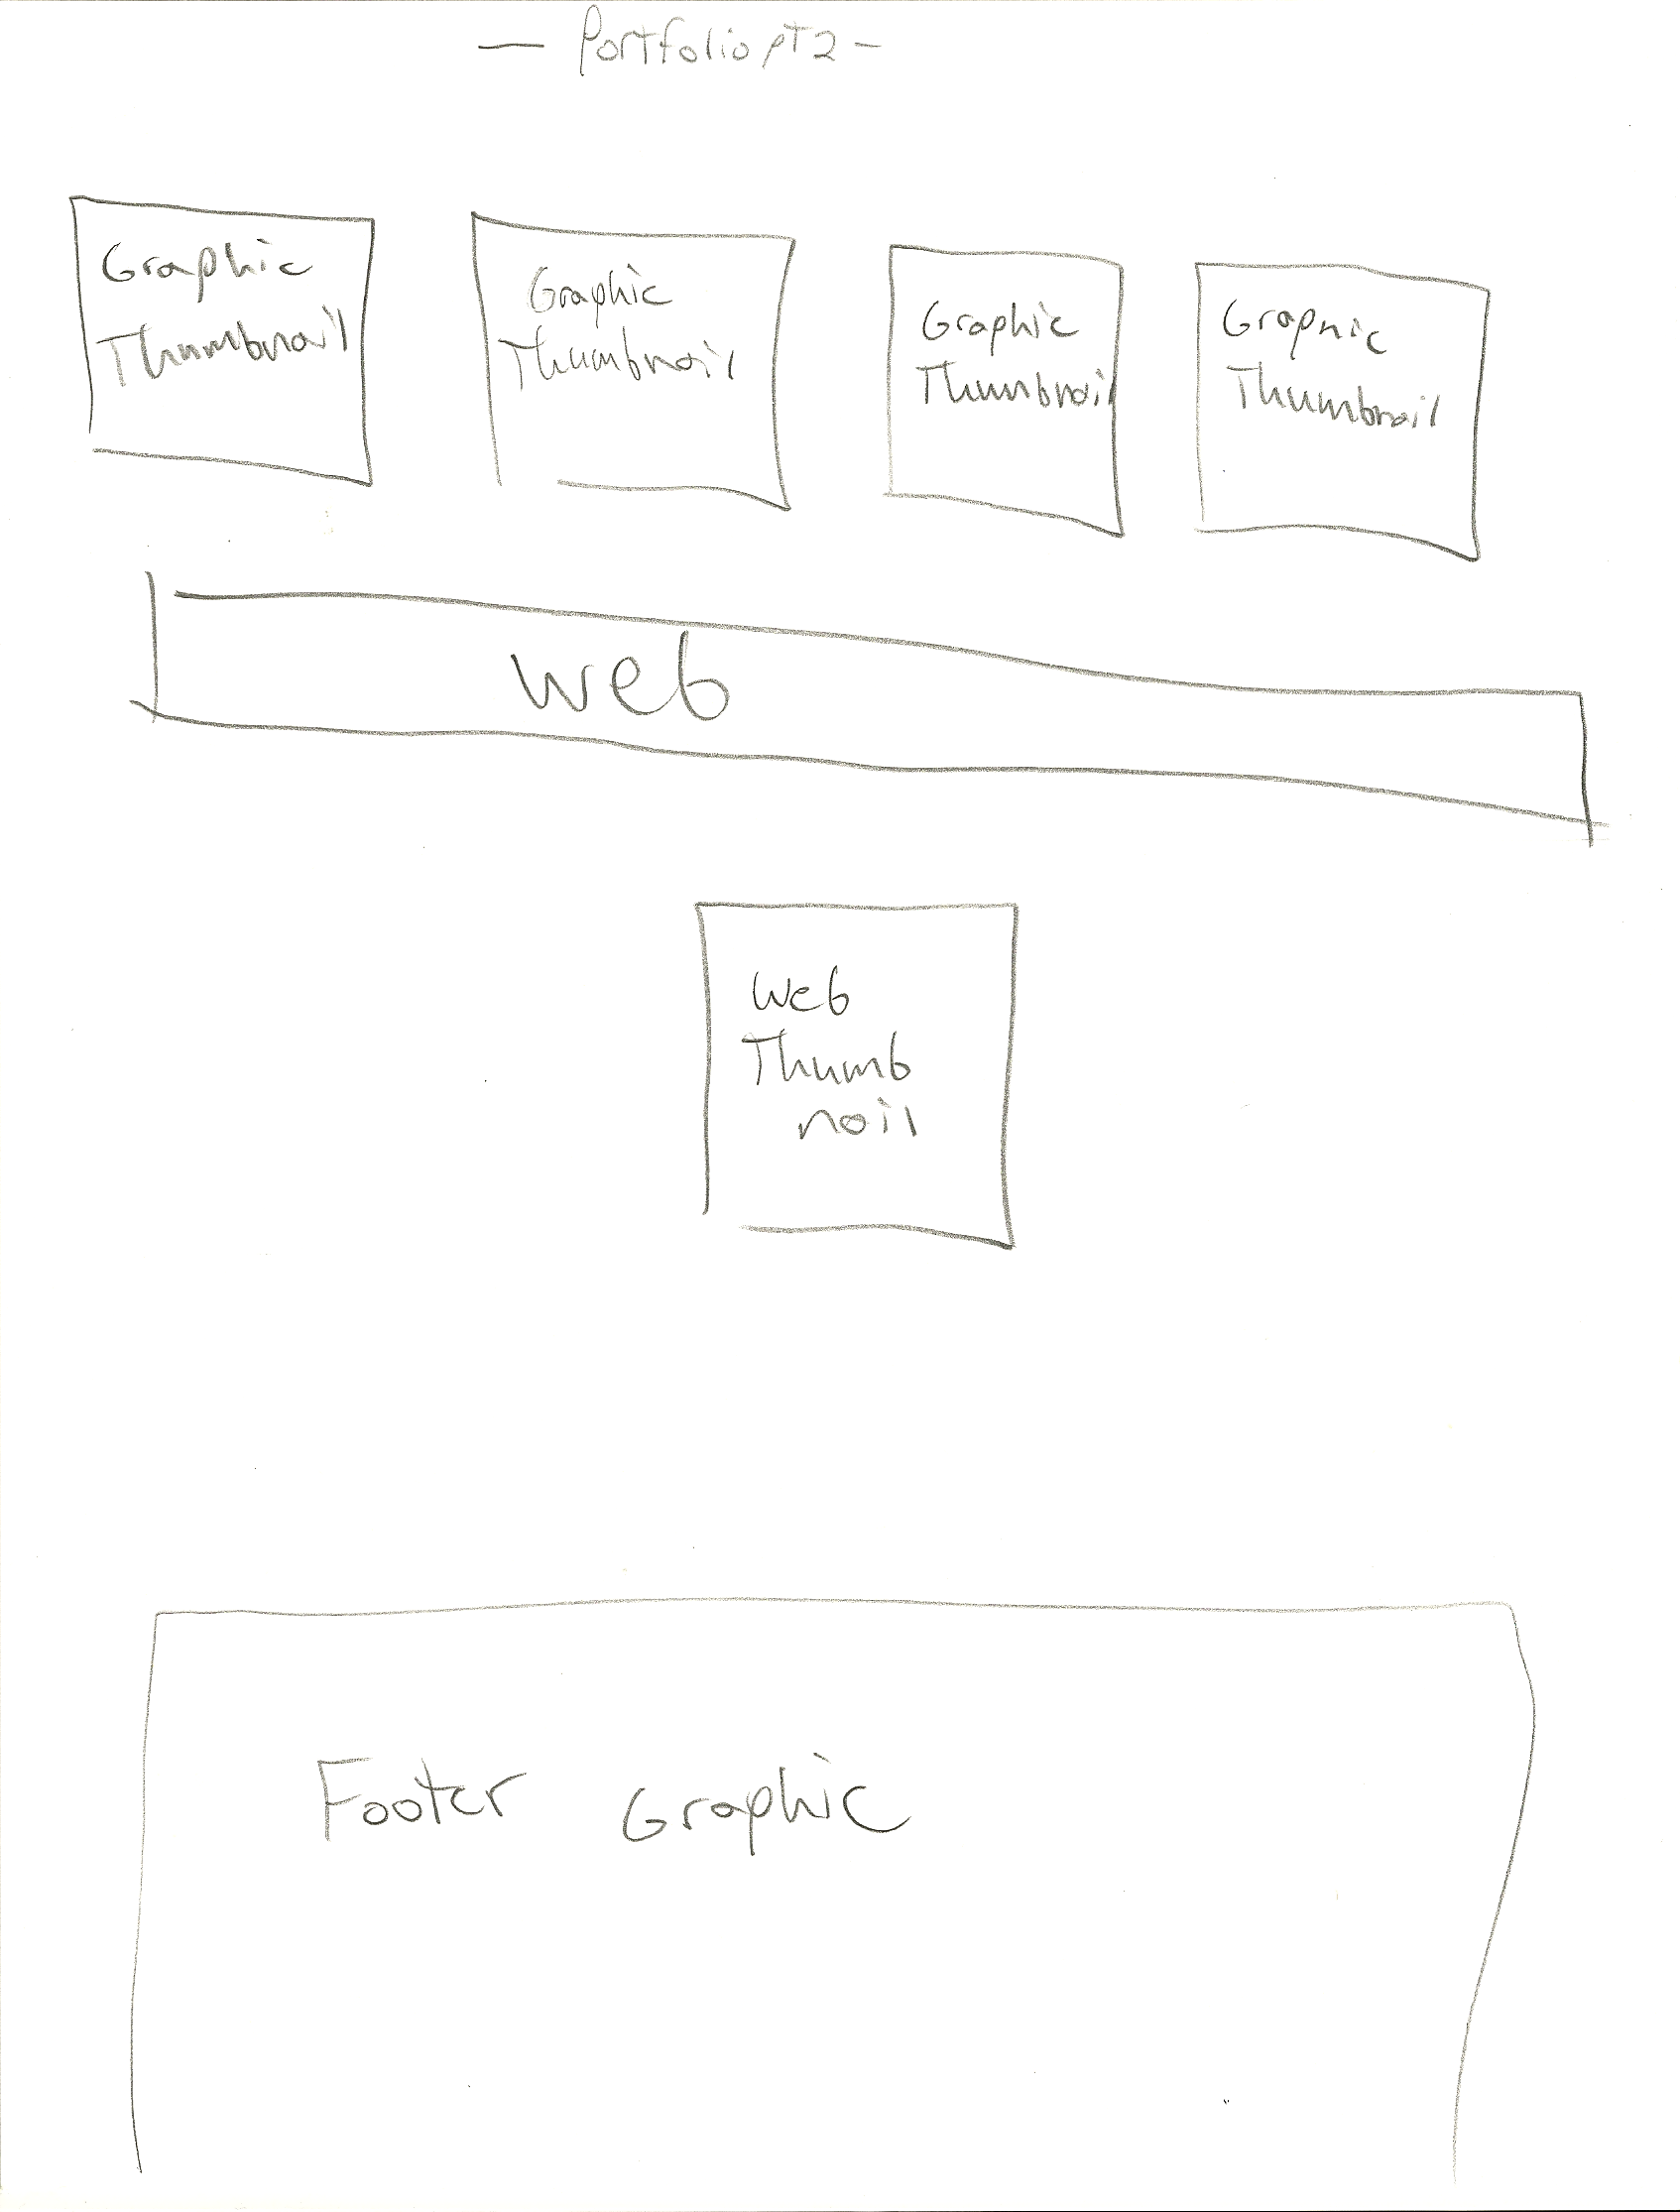 — Portfolio pt 2 -
Graphic
Thumbnail
Graphic
Thumbnail
Graphic
Thumbnail
Graphic
Thumbnail
Web
Web
Thumb
nail
Footer Graphic